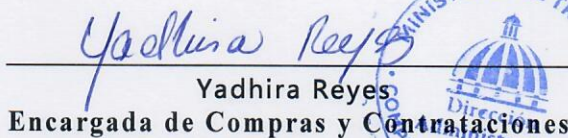 Yadhira Reyes
Yadhira Reyes
Encargada de Compras y Contrataciones
MINIS
Dirección